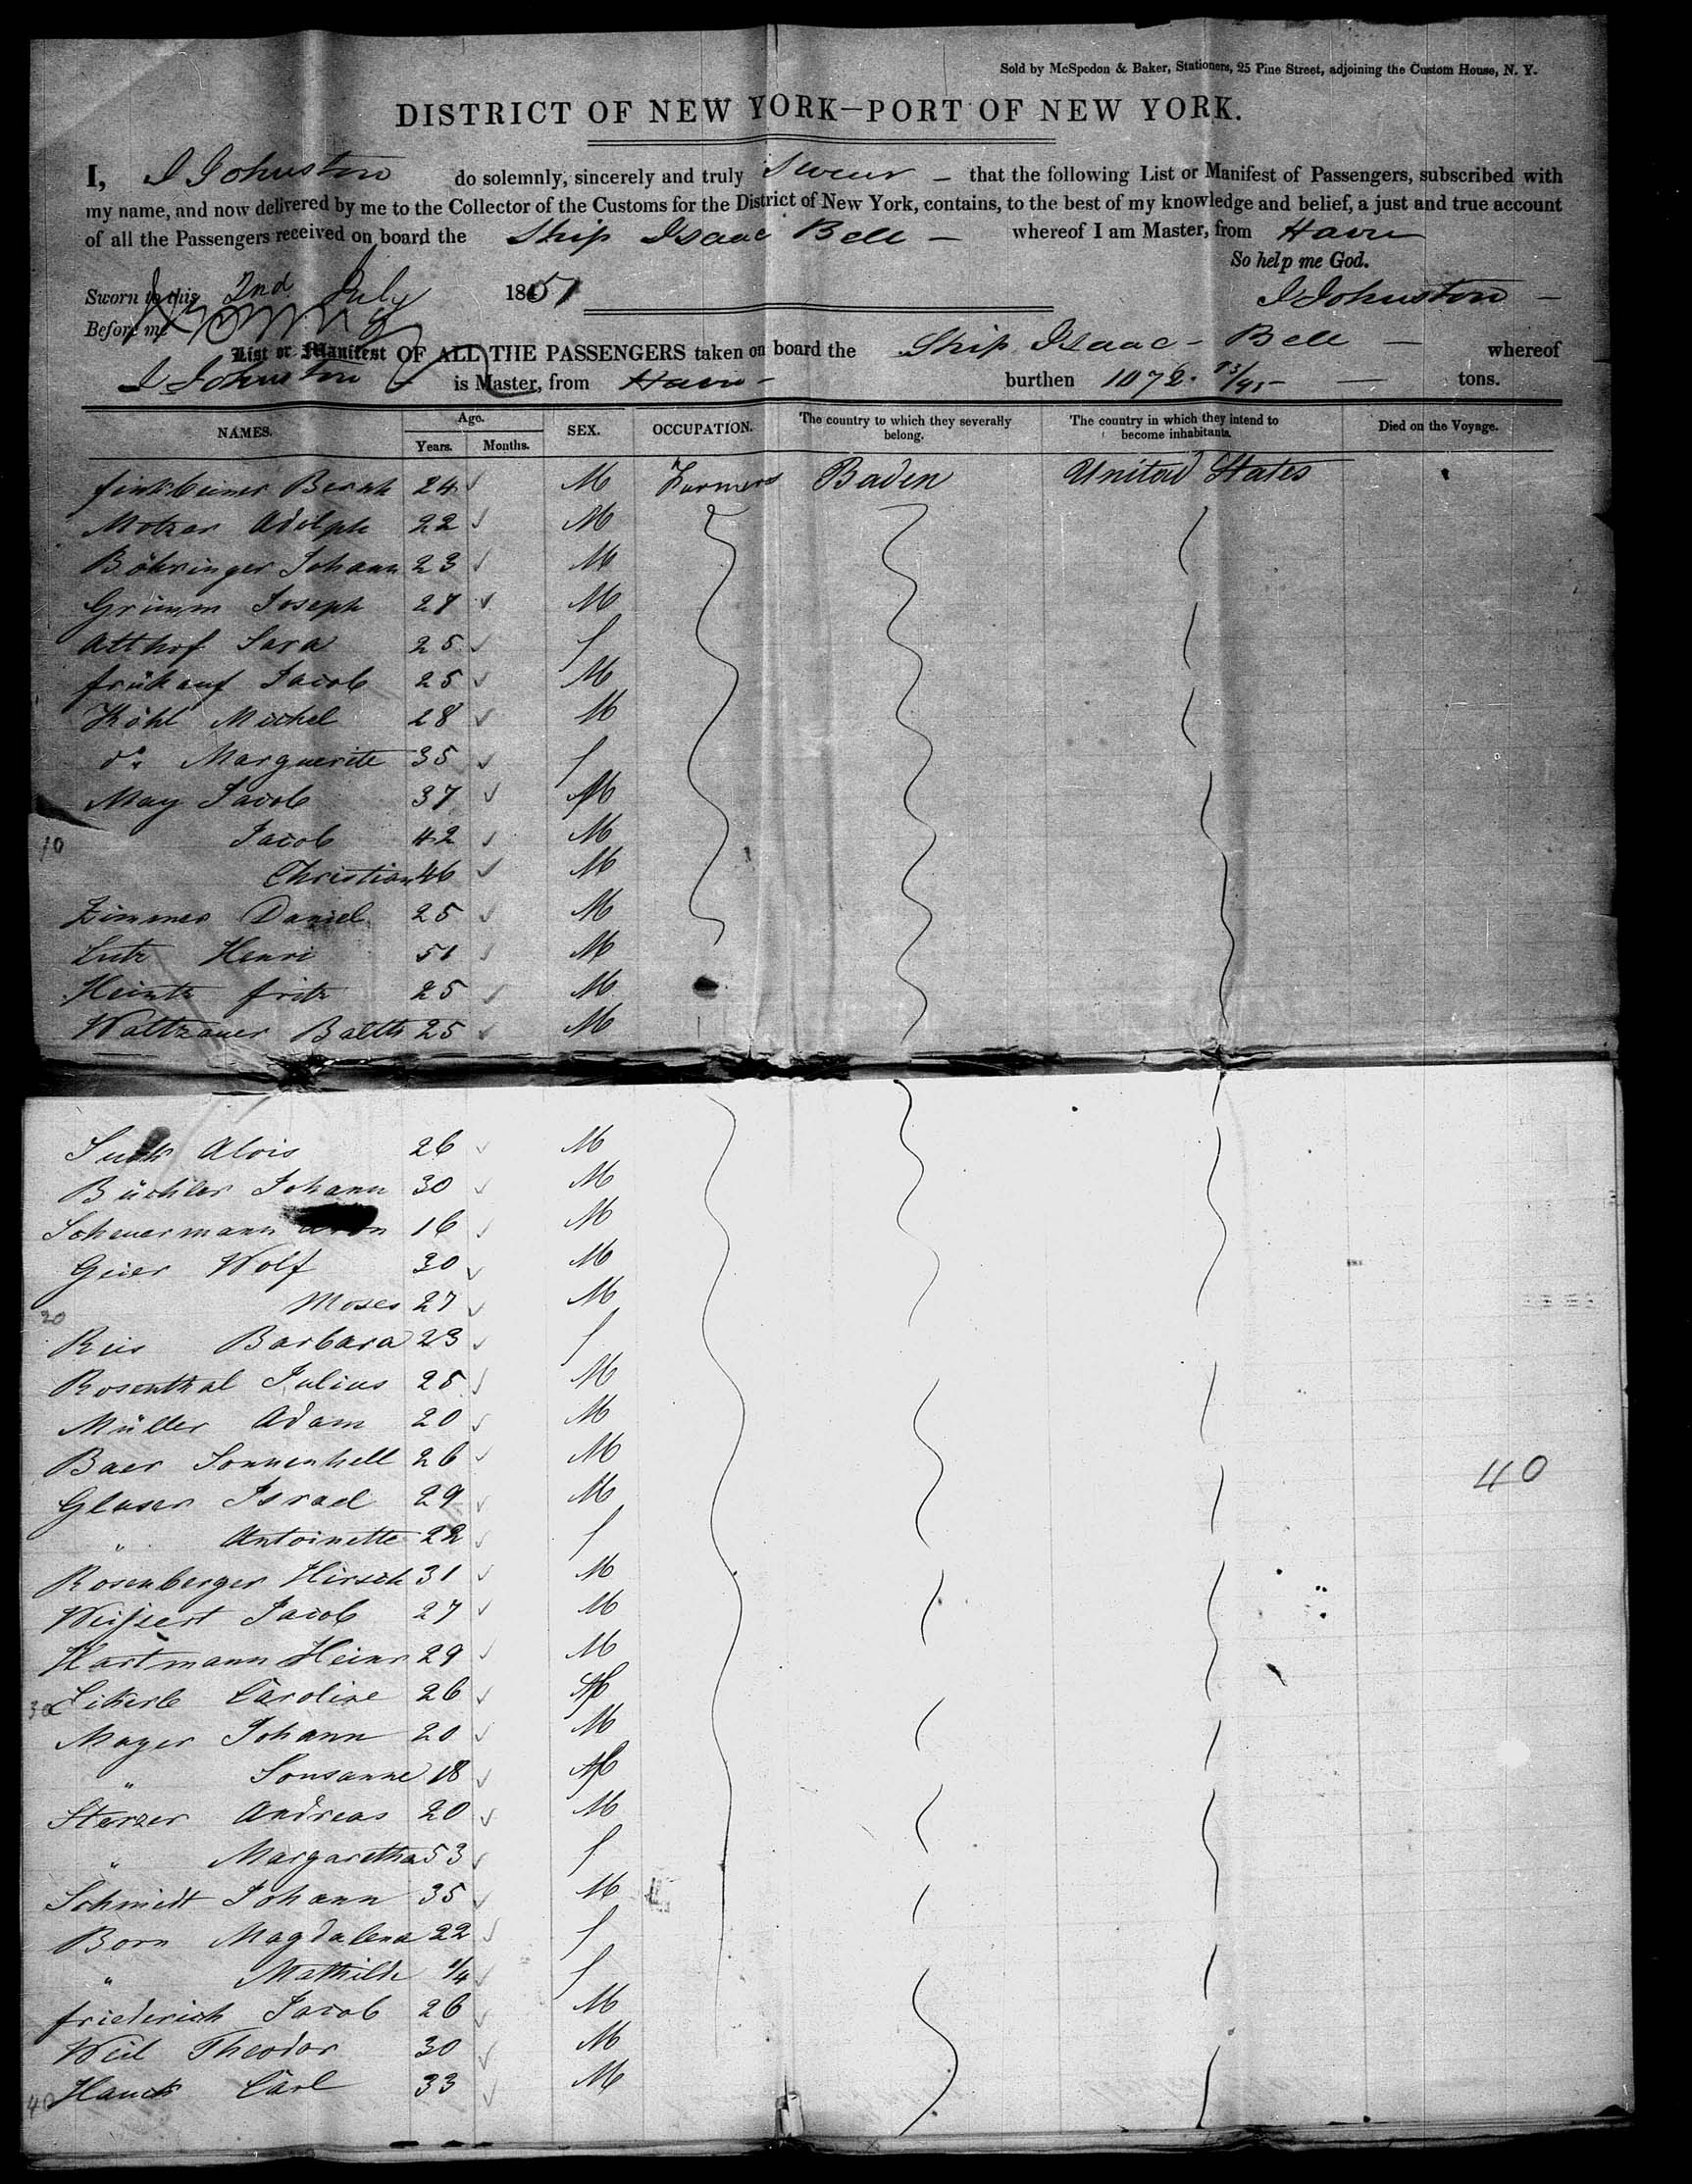 Sold by McSpedon & Baker, Stationers, 25 Pine Street, adjoining the Custom House, N. Y.
DISTRICT OF NEW YORK—PORT OF NEW YORK.
I, J Johnston do solemnly, sincerely and truly swear – that the following List or Manifest of Passengers, subscribed with
my name, and now delivered by me to the Collector of the Customs for the District of New York, contains, to the best of my knowledge and belief, a just and true account
of all the Passengers received on board the Ship Isaac Bell – whereof I am Master, from Havre
So help me God.
Sworn to this 2nd July 1851 J Johnston –
Before me
List or Manifest OF ALL THE PASSENGERS taken on board the Ship Isaac – Bell – whereof
J Johnston – is Master, from Havre – burthen 1072. 93/95 – tons.
NAMES. Age. SEX. OCCUPATION. The country to which they severally belong. The country in which they intend to become inhabitants. Died on the Voyage.
Years. Months.
Finkbeiner Bernh 24 M Farmers Baden United States
Motzer Adolph 22 M
Böhringer Johann 23 M
Grimm Joseph 27 M
Atthof Sara 25 f
Frühauf Jacob 25 M
Köhl Michel 28 M
do Marguerite 35 f
May Jacob 37 M
10 Jacob 42 M
Christian 46 M
Zimmer Daniel 25 M
Lutz Henri 51 M
Heintz Fritz 25 M
Waltzauer Balth 25 M
Alois 26 M
Büchler Johann 30 M
Scheuermann 16 M
Geier Wolf 30 M
20 Moses 27 M
Reis Barbara 23 f
Rosenthal Julius 25 M
Müller Adam 20 M
Baer Sonnenhell 26 M
Glaser Israel 29 M
40
" Antoinette 22 f
Rosenberger Hirsch 31 M
Weissert Jacob 27 M
Hartmann Heinr 29 M
30 Caroline 26 f
Mayer Johann 20 M
" Sousanne 18 f
Sterzer Andreas 20 M
" Margaretha 53 f
Schmidt Johann 35 M
Born Magdalena 22 f
" Mathilde 1/4 f
Friederich Jacob 26 M
Weil Theodor 30 M
40 Hauck Carl 33 M